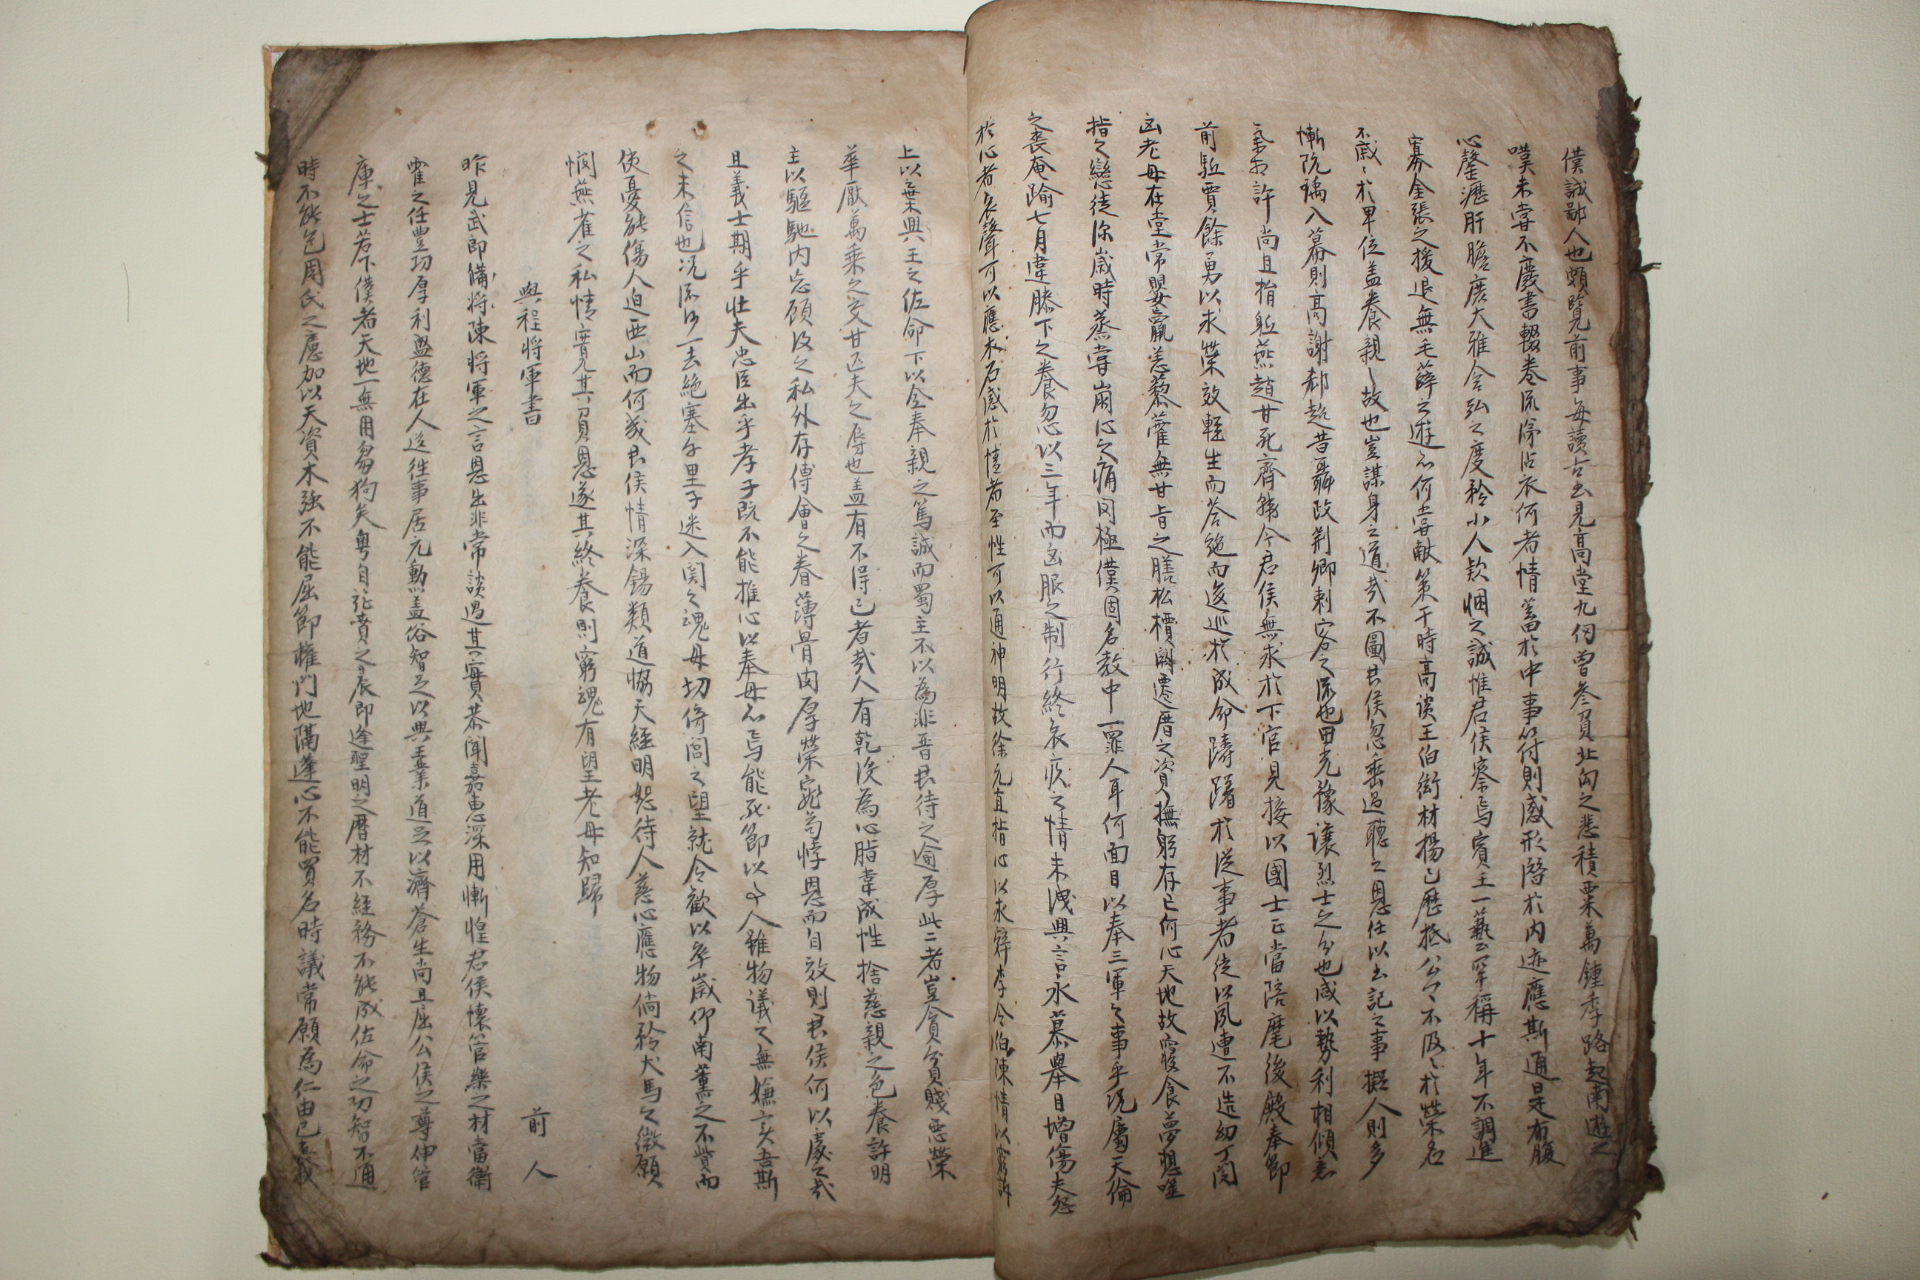 僕誠鄙人也頗覽前事每讀古書見高堂九仞曾參負北向之悲積粟萬鍾季路起南遊之
嘆未嘗不廢書輟卷流涕沾衣何者情蓄於中事符則感形潛於內迹應斯通是布腹
心罄瀝肝膽庶大雅含弘之度矜小人款悃之誠惟君侯察焉賓王一藝罕稱十年不調進
寡金張之援退無毛薛之遊亦何嘗獻策干時高談王伯衒材揚己歷抵公卿不汲汲於榮名
不戚戚於卑位盖養親之故也豈謀身之道哉不圖君侯忽垂過聽之恩任以書記之事擬人則多
慚阮瑀入幕則高謝郗超昔聶政荊卿刺客之流也田光豫讓烈士之分也咸以勢利相傾意
氣相許尚且捐軀燕趙甘死齊韓今君侯無求於下官見接以國士正當陪麾後殿奉節
前驅賈餘勇以求榮效輕生而答施而逡巡於成命躊躇於從事者徒以夙遭不造幼丁閔
凶老母在堂常嬰羸恙藜藿無甘旨之膳松檟闕遷厝之資撫躬存亡何心天地故寢食夢想噬
指之戀徒深歲時蒸嘗崩心之痛罔極僕固名教中一罪人耳何面目以奉三軍之事乎況屬天倫
之喪奄踰七月違膝下之養忽以三年而凶服之制行終哀疚之情未洩興言永慕舉目增傷夫怨
於心者哀聲可以應木石感於情者至性可以通神明故徐元直指心以求辭李令伯陳情以窮訴
上以棄興王之佐命下以全奉親之篤誠而蜀主不以為非晉君待之逾厚此二者豈貪貧賤惡榮
華厭萬乘之交甘匹夫之辱也盖有不得已者哉人有乾沒為心脂韋成性捨慈親之色養許明
主以驅馳內忘顧復之私外存傅會之眷薄骨肉厚榮寵苟悖恩而自效則君侯何以處之哉
且義士期乎壯夫忠臣出乎孝子既不能推心以奉母亦焉能死節以事人雖物議之無嫌實吾斯
之未信也況流沙一去絕塞千里子迷入關之魂母切倚閭之望就令歡以卒歲仰南薰之不貲而
使憂能傷人迫西山而何幾君侯情深錫類道恊天經明恕待人慈心應物倘矜犬馬之微願
憫燕雀之私情寬其負恩遂其終養則窮魂有望老母知歸
與程將軍書 前人
昨見武郎備將陳將軍之言恩出非常談過其實恭聞嘉惠深用慚惶君侯懷管樂之材當衛
霍之任豊功厚利盛德在人送往事居元勳盖俗智足以興王業道足以濟蒼生尚且屈公侯之尊伸管
庫之士若下僕者天地一無用芻狗矣粤自訟費之辰即逢聖明之曆材不經務不能成佐命之功智不通
時不能包周氏之慮加以天資木強不能屈節權門地隔蓬心不能買名時議常願為仁由己義